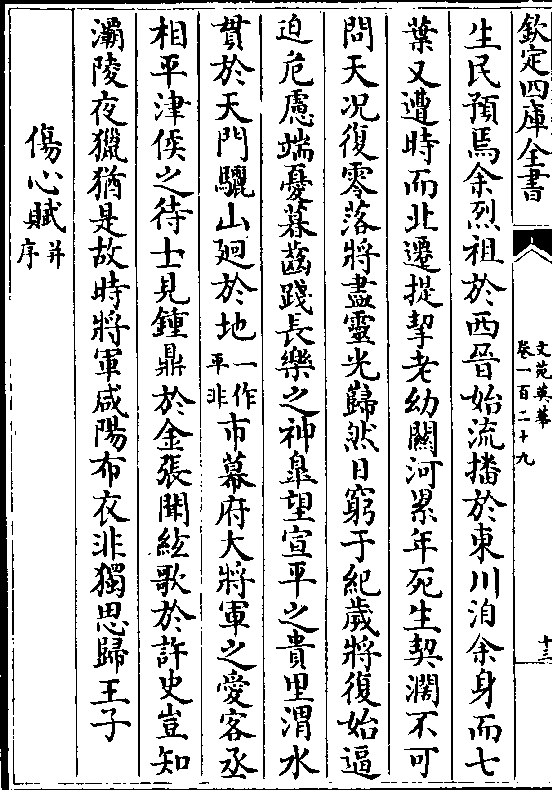 欽定四庫全書
文苑英華
卷一百二十九
十三
生民預焉余烈祖於西晉始流播於東川洎余身而七
葉又遭時而北遷提挈老幼關河累年死生契濶不可
問天况復零落將盡靈光巋然日窮于紀歲將復始逼
迫危慮端憂暮齒踐長樂之神臯望宣平之貴里渭水
貫於天門驪山廻於地一作平非市幕府大將軍之愛客丞
相平津侯之待士見鍾鼎於金張聞絃歌於許史豈知
灞陵夜獵猶是故時將軍咸陽布衣非獨思歸王子
傷心賦并序